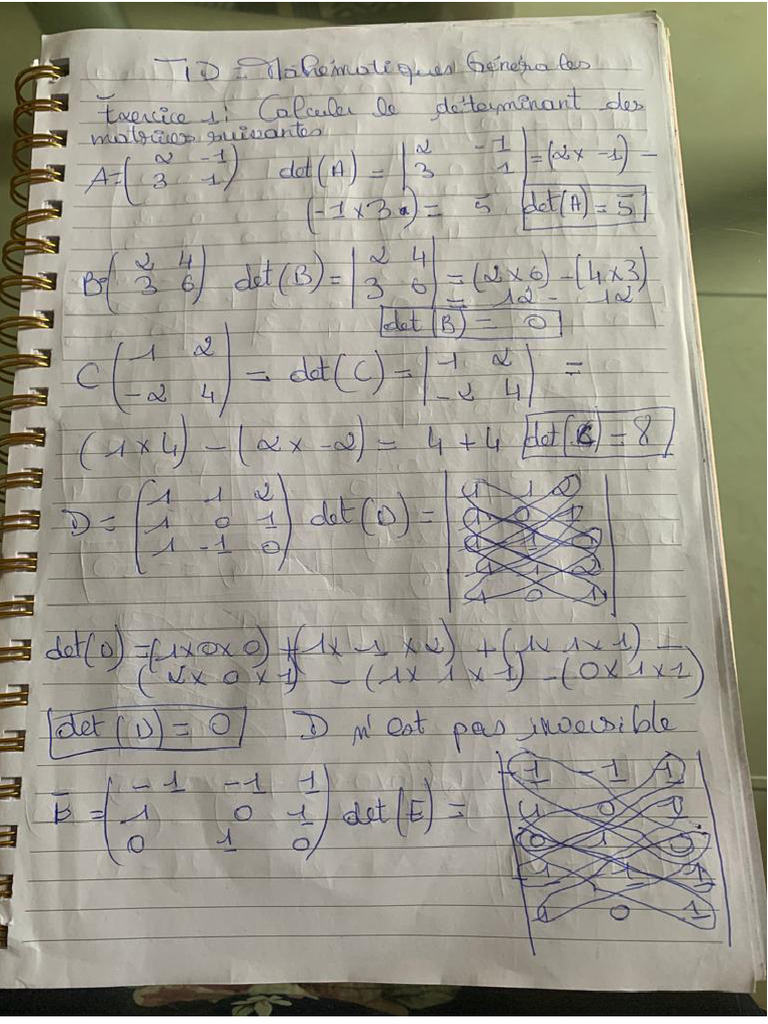 TD : Mathématiques Générales
Exercice 1: Calculer le déterminant des
matrices suivantes
A=( 2 -1 / 3 1 ) det(A) = | 2 -1 / 3 1 | =(2x -1) -
(-1x3) = 5 det(A) = 5
B=( 2 4 / 3 6 ) det(B)= | 2 4 / 3 6 | = (2x6) - (4x3)
= 12 - 12
det(B) = 0
C( 1 2 / -2 4 ) = det(C) = | 1 2 / -2 4 | =
(1x4) - (2x -2) = 4 + 4 det(C) = 8
D = ( 1 1 2 / 1 0 1 / 1 -1 0 ) det(D) =
det(D) =(1x0x0) + (1x -1 x2) + (1x 1x1) -
(2x 0 x1) - (1x 1 x1) - (0x1x1)
det(D) = 0 D n'est pas
= ( -1 -1 1 / 1 0 1 / 0 1 0 ) det(E) =